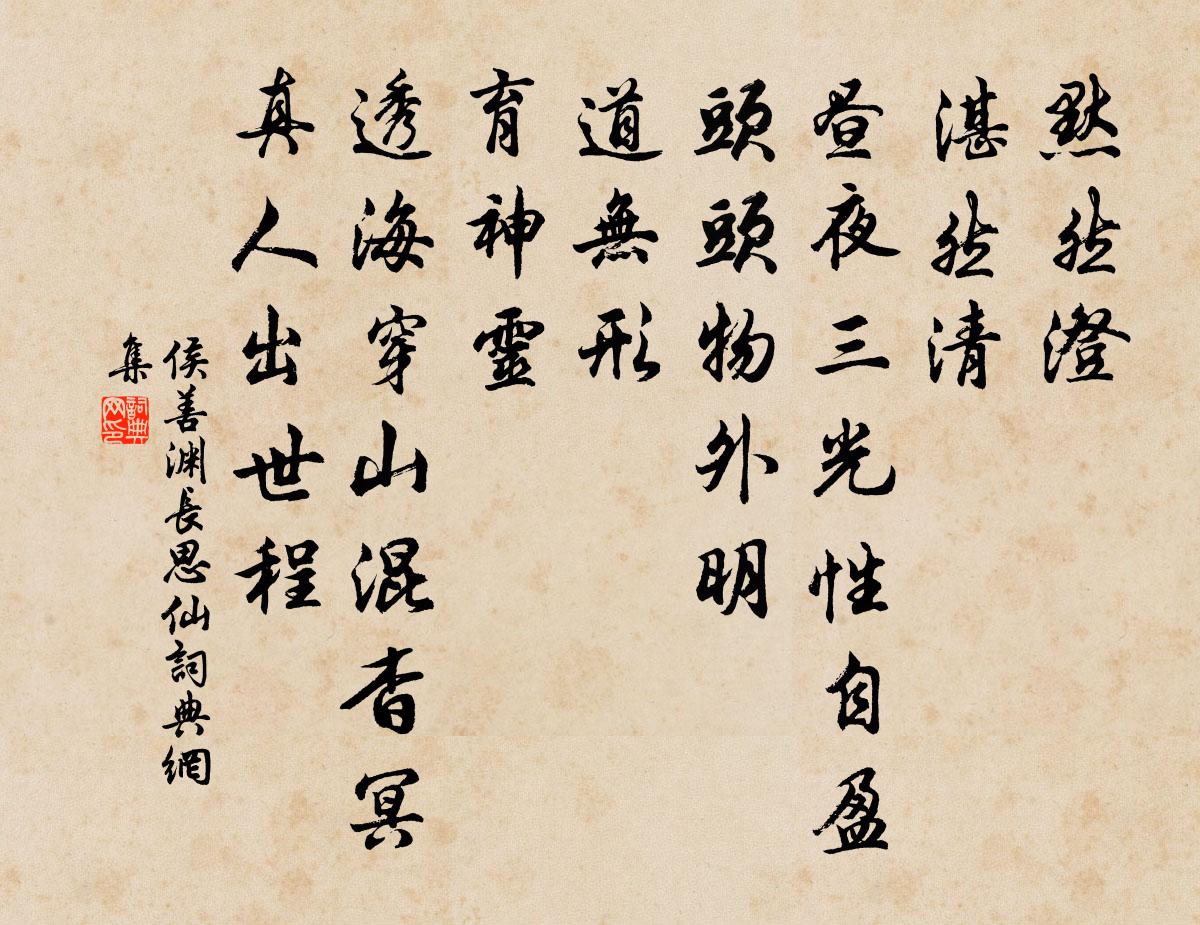 默然澄
湛然清
昼夜三光性自盈
頭頭物外明
道無形
育神靈
透海穿山混杳冥
真人出世程
侯善渊長思仙詞典網
集
詞典网印